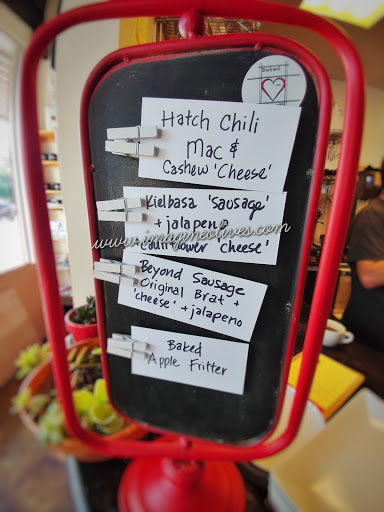 Baked
Hatch Chili
Mac &
Cashew 'Cheese'
Kielbasa 'Sausage'
+ jalapeno
www.imagineolives.com
Cauliflower 'cheese'
Beyond Sausage
Original Brat +
'cheese' + jalapeno
Baked
Apple Fritter